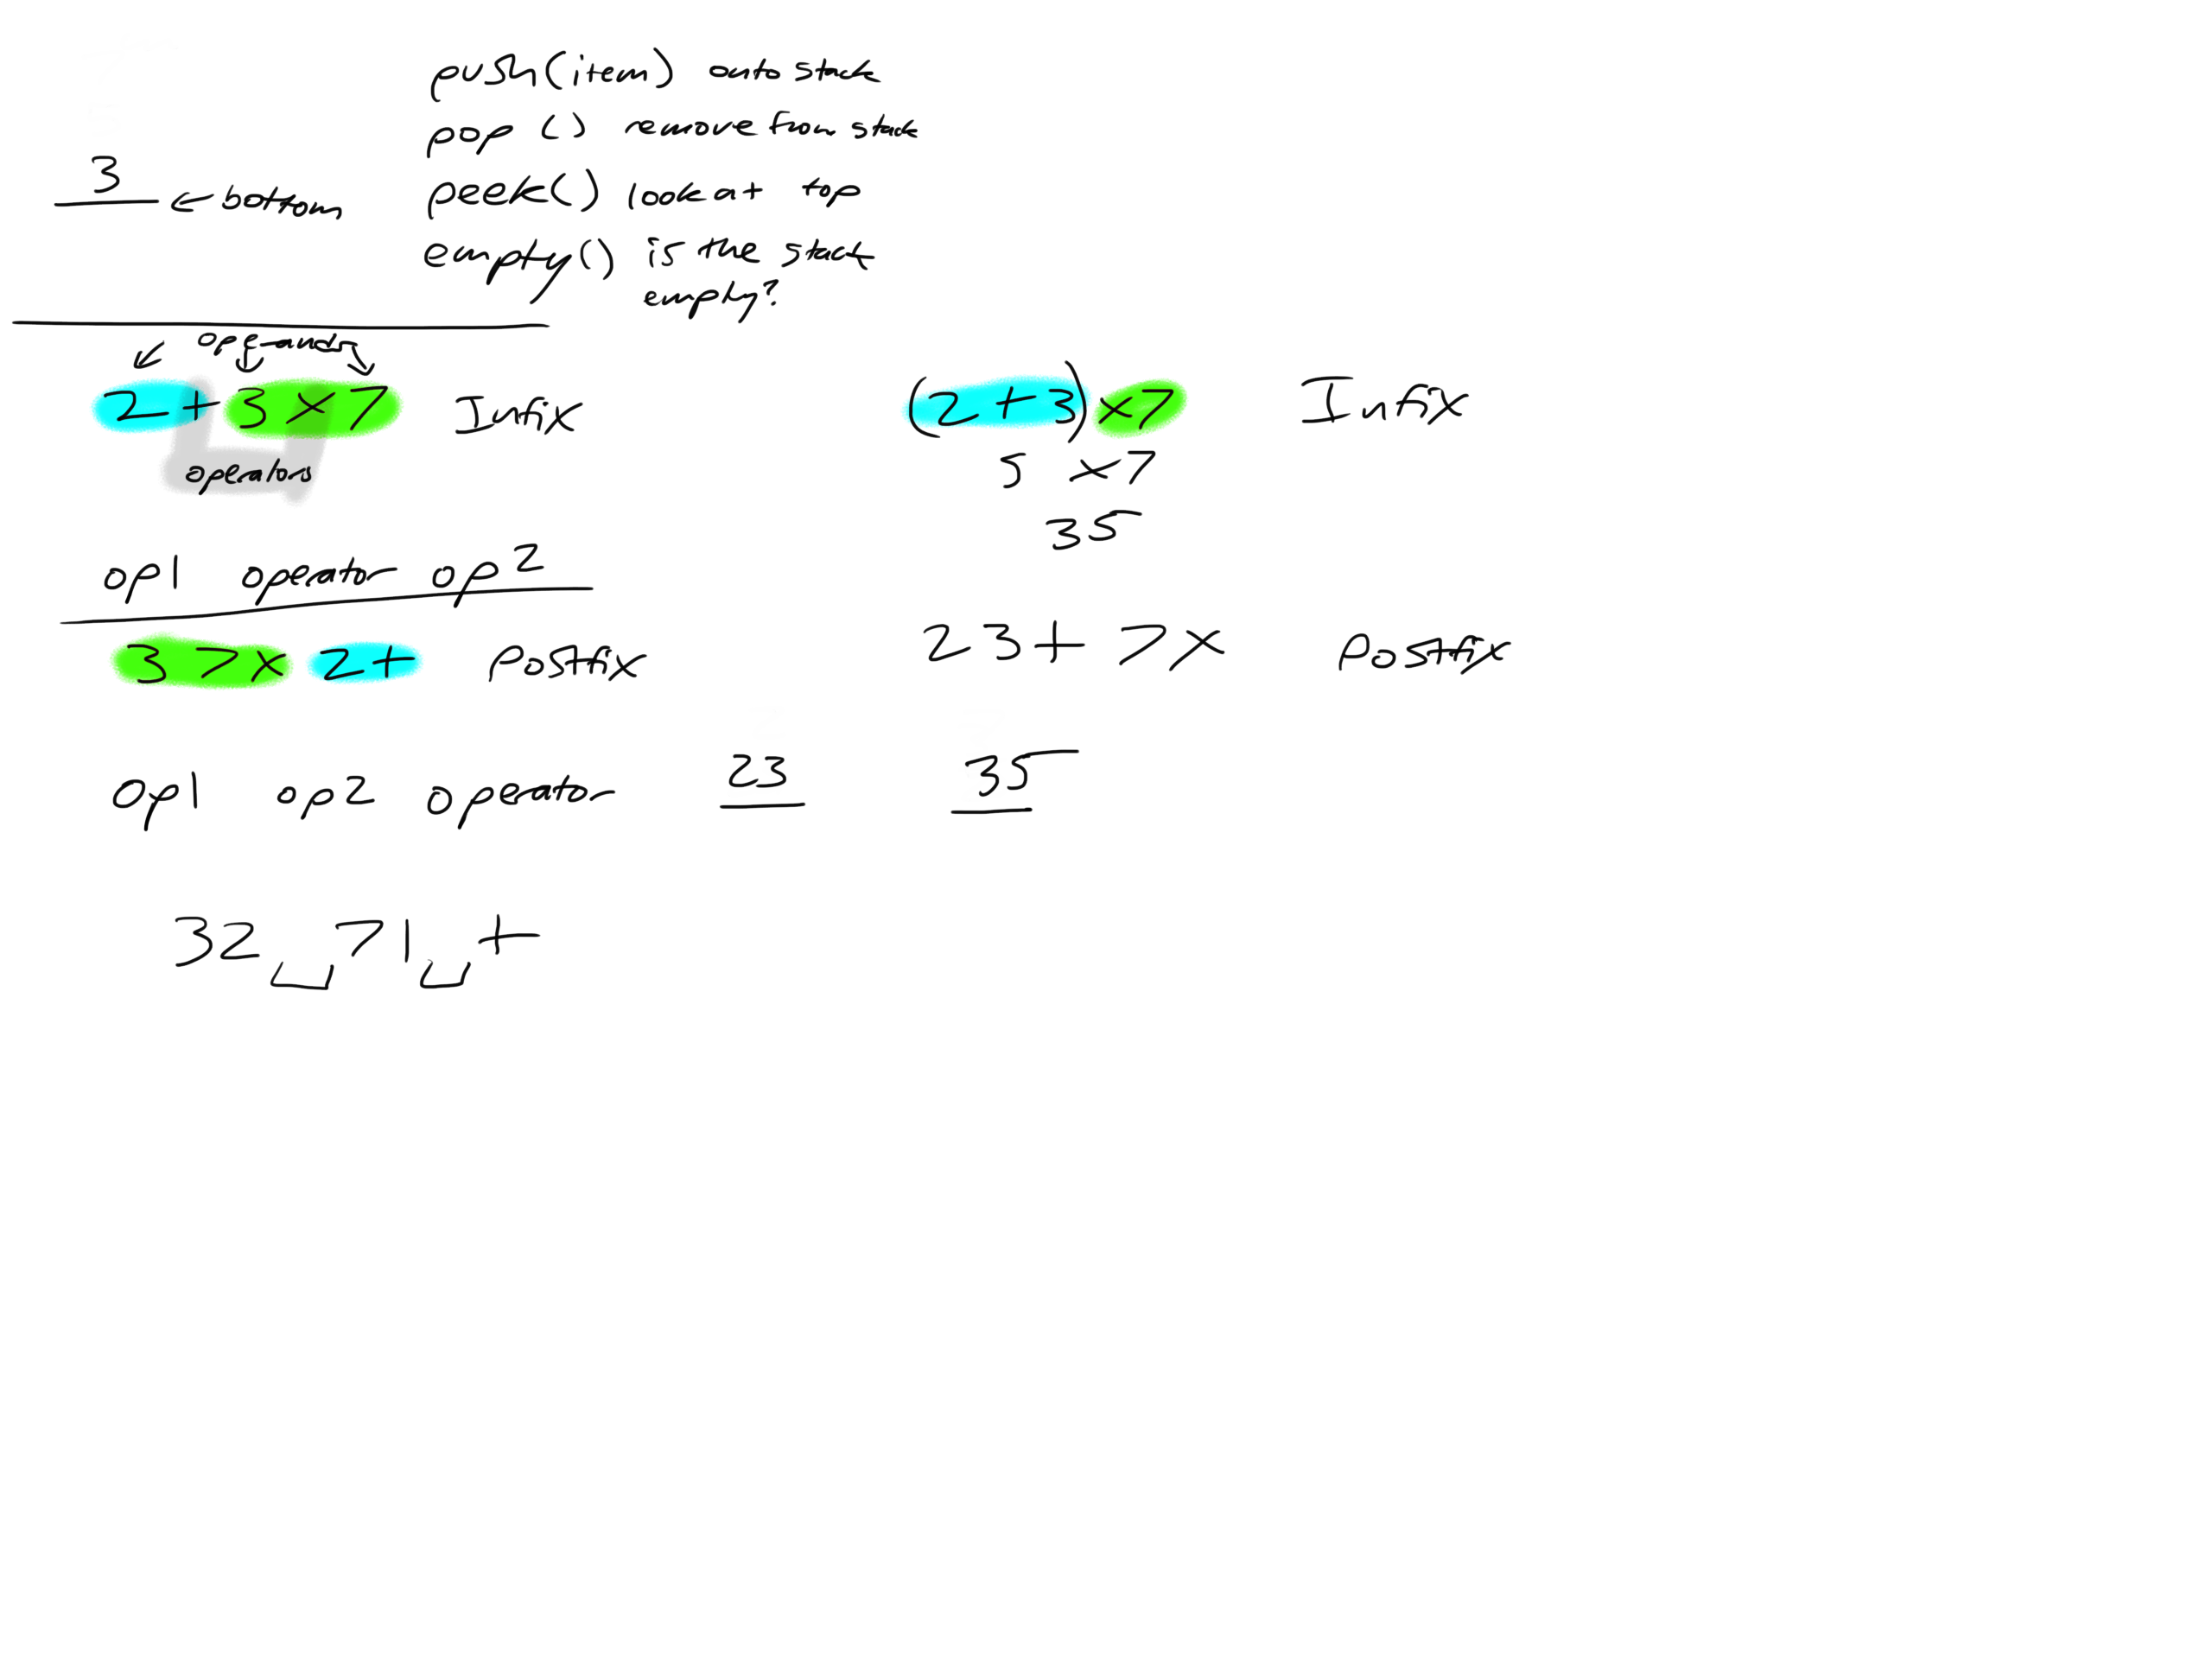 push(item) onto stack
pop () remove from stack
3
← bottom
peek() look at top
empty() is the stack
empty?
operands
2 + 3 × 7 Infix
operators
op1 operator op2
3 7 × 2 + Postfix
op1 op2 operator
23
32 ⎵ 71 ⎵ +
(2 + 3) × 7 Infix
5 × 7
35
2 3 + 7 × Postfix
35